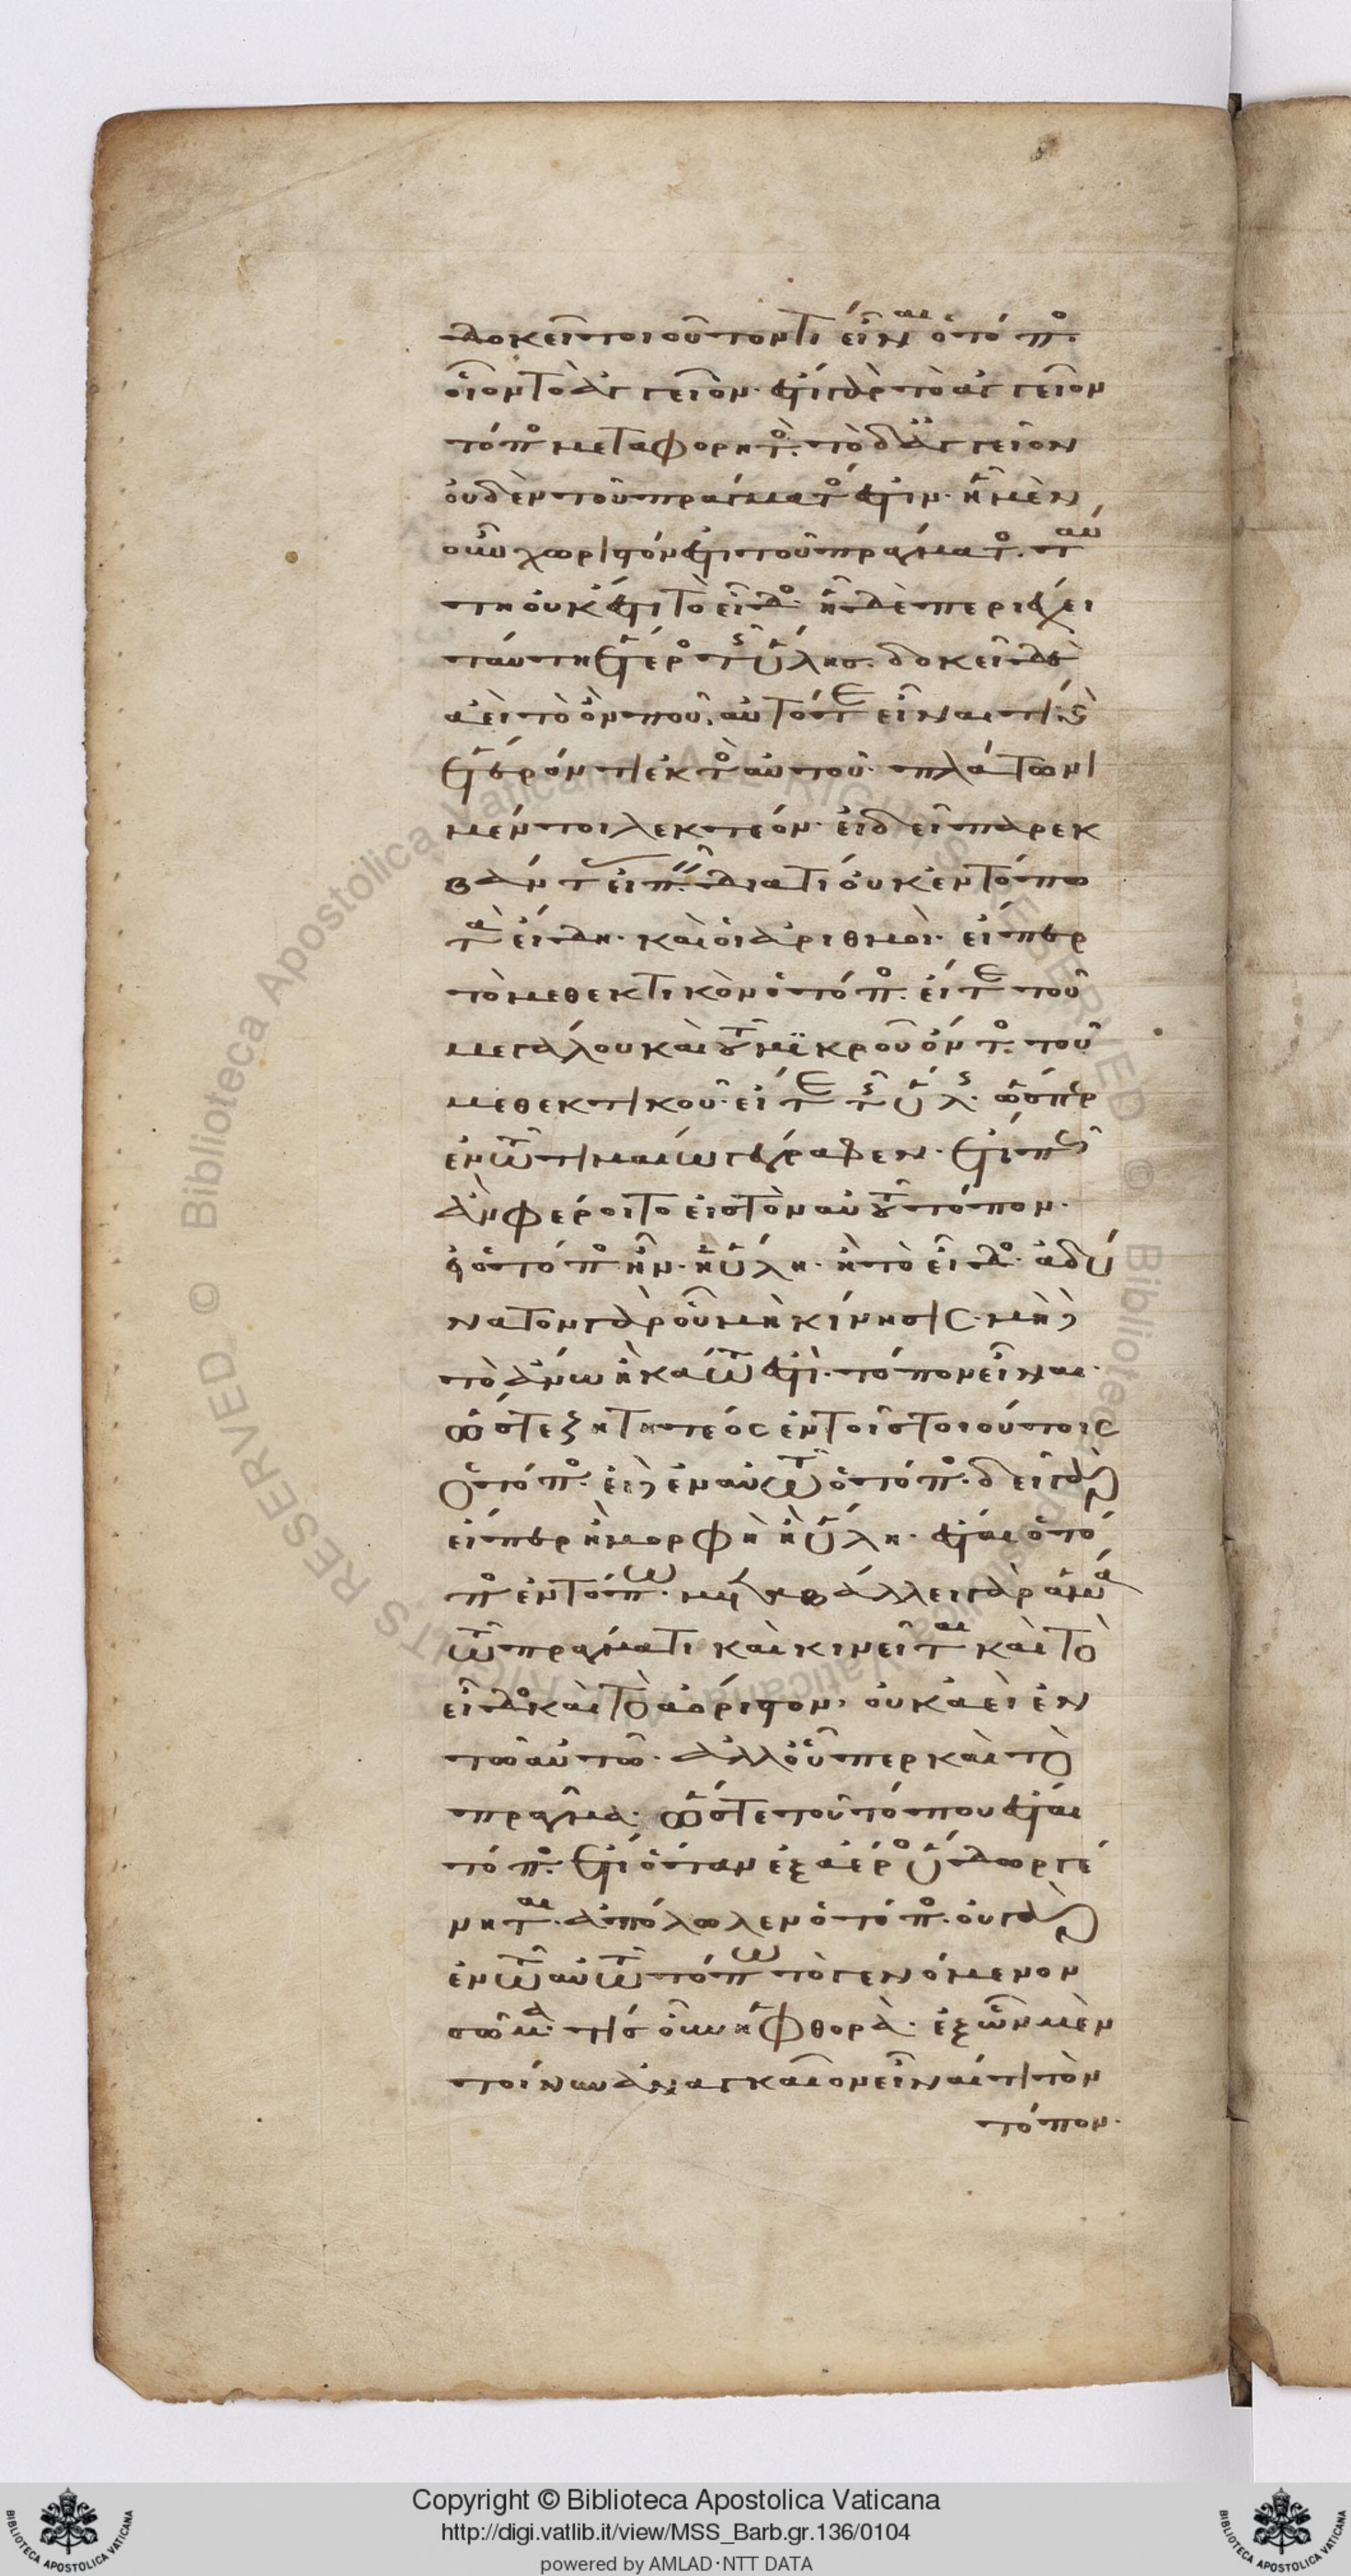 δοκεῖ τοιοῦτόν τι εἶναι ὁ τόπος.
οἷον τὸ ἀγγεῖον· ἔστι γὰρ τὸ ἀγγεῖον
τόπος μεταφορητός. τὸ δ' ἀγγεῖον
οὐδὲν τοῦ πράγματός ἐστιν. ᾗ μὲν
οὖν χωριστόν ἐστι τοῦ πράγματος. ταύ
τῃ οὐκ ἔστι τὸ εἶδος. ᾗ δὲ περιέχει
ταύτῃ ἕτερος τῆς ὕλης. δοκεῖ δὲ
ἀεὶ τὸ ὄν που. αὐτό τε εἶναί τι καὶ
ἕτερόν τι ἐκτὸς αὐτοῦ. πλάτωνι
μέντοι λεκτέον. εἰ δεῖ παρεκ
βάντας εἰπεῖν. διατί οὐκ ἐν τόπω
τὰ εἴδη. καὶ οἱ ἀριθμοί. εἴπερ
τὸ μεθεκτικὸν ὁ τόπος. εἴτε τοῦ
μεγάλου καὶ τοῦ μικροῦ ὄντος τοῦ
μεθεκτικοῦ. εἴτε τῆς ὕλης. ὥσπερ
ἐν τῶ τιμαίω γέγραφεν. ἔτι πῶς
ἂν φέροιτο εἰς τὸν αὑτοῦ τόπον.
εἰ ὁ τόπος ἦν. ἢ ὕλη. ἢ τὸ εἶδος. ἀδύ
νατον γὰρ οὗ μὴ κίνησις. μηδὲ
τὸ ἄνω ἢ κάτω ἐστὶ. τόπον εἶναι.
ὥστε ζητητέος ἐν τοῖς τοιούτοις
ὁ τόπος. εἰ δ' ἐν αὐτῶ ὁ τόπος. δεῖ γὰρ
εἴπερ ἢ μορφὴ ἢ ὕλη. ἔσται ὁ τό
πος ἐν τόπω. μεταβάλλει γὰρ ἅμα
τῶ πράγματι καὶ κινεῖται καὶ τὸ
εἶδος καὶ τὸ ἀόριστον. οὐκ ἀεὶ ἐν
τῶ αὐτῶ. ἀλλ' οὗπερ καὶ τὸ
πρᾶγμα. ὥστε τοῦ τόπου ἔσται
τόπος. ἔτι ὅταν ἐξ ἀέρος ὕδωρ γέ
νηται. ἀπόλωλεν ὁ τόπος. οὐ γὰρ
ἐν τῶ αὐτῶ τόπω τὸ γενόμενον
σῶμα. τίς οὖν ἡ φθορά. ἐξ ὧν μὲν
τοίνυν ἀναγκαῖον εἶναί τι τὸν
τόπον.
Copyright © Biblioteca Apostolica Vaticana
http://digi.vatlib.it/view/MSS_Barb.gr.136/0104
powered by AMLAD·NTT DATA